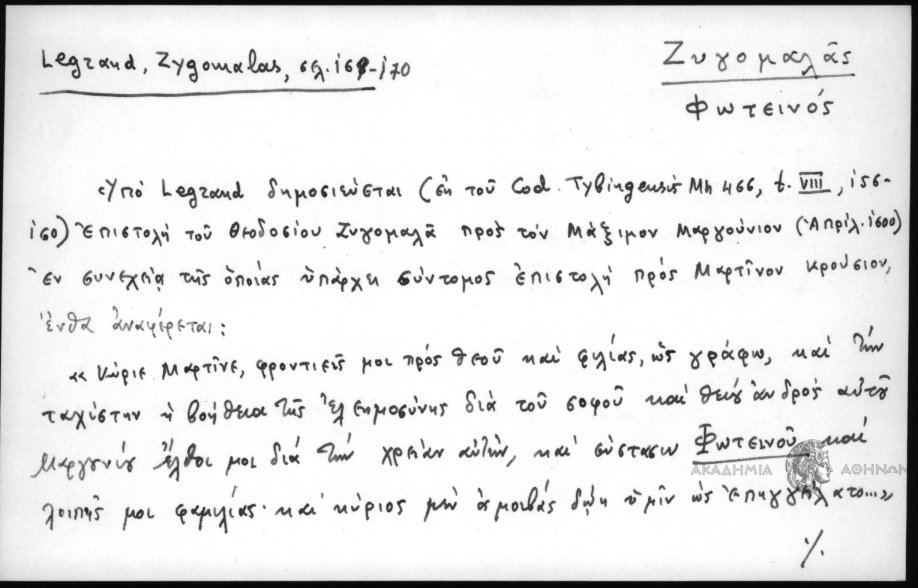 Legrand, Zygomalas, σελ. 169-170
Ζυγομαλᾶς
Φωτεινός
Ὑπό Legrand δημοσιεύεται (ἐκ τοῦ Cod. Tybingensis Mh 466, t. VIII, 156-
160) ἐπιστολή τοῦ Θεοδοσίου Ζυγομαλᾶ πρός τόν Μάξιμον Μαργούνιον (Ἀπρίλ. 1600)
ἐν συνεχείᾳ τῆς ὁποίας ὑπάρχει σύντομος ἐπιστολή πρός Μαρτῖνον Κρούσιον,
ἔνθα ἀναφέρεται:
«Κύριε Μαρτῖνε, φροντιεῖς μοι πρός θεοῦ καί φιλίας, ὡς γράφω, καί τήν
ταχίστην ἡ βοήθεια τῆς ἐλεημοσύνης διά τοῦ σοφοῦ καί θείου ἀνδρός αὐτοῦ
Μαργουνίου ἔλθοι μοι διά τήν χρείαν αὐτήν, καί σύστασιν Φωτεινοῦ καί
λοιπῆς μοι φαμιλίας· καί κύριος μήν ἀμοιβάς δῴη ὑμῖν ὡς ἐπηγγείλατο...»
ΑΚΑΔΗΜΙΑ ΑΘΗΝΩΝ
./.